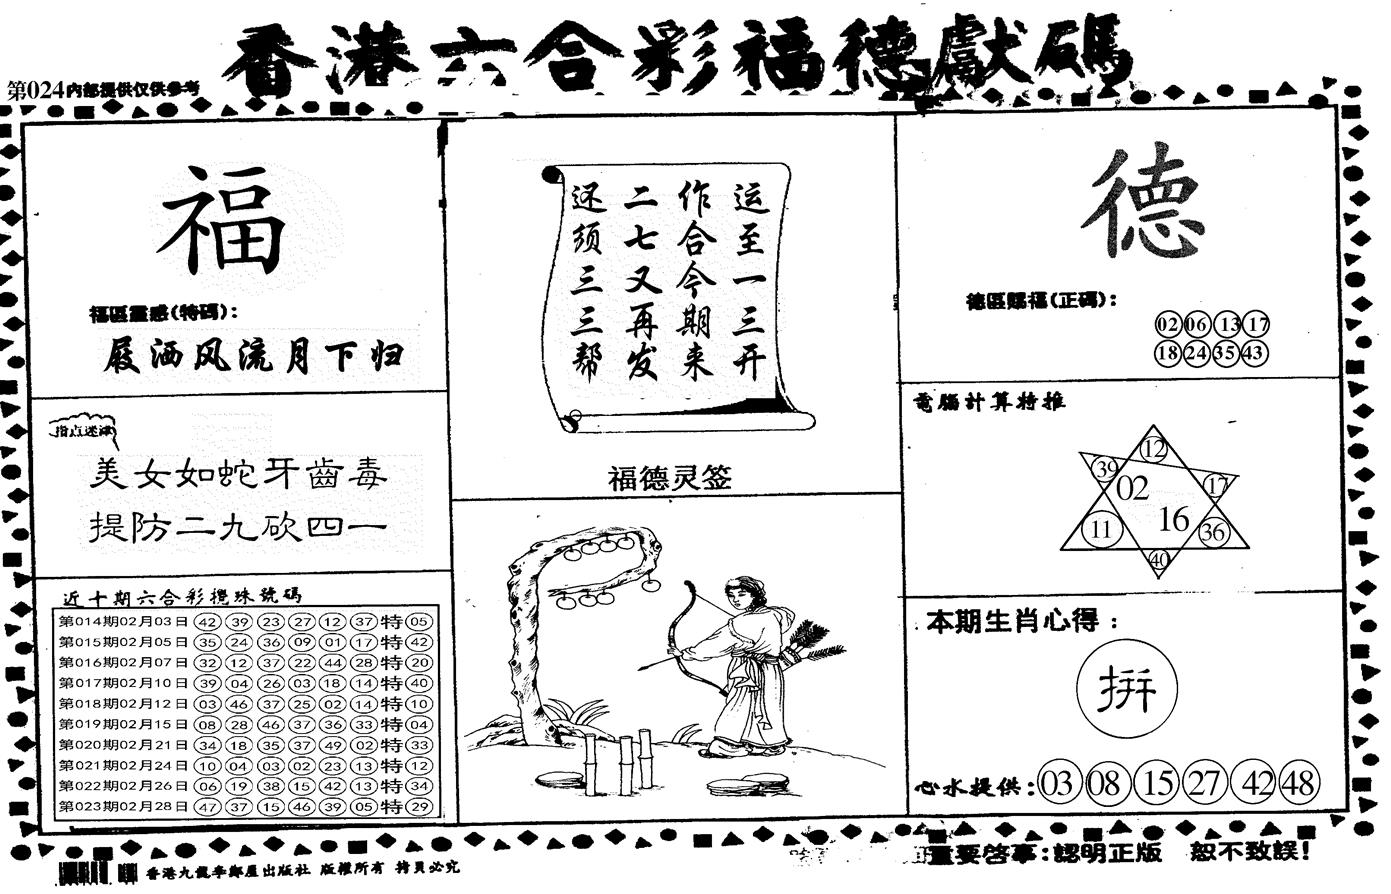 香港六合彩福德獻碼
第024内部提供仅供参考
福
福區靈感(特碼):
屐洒风流月下归
指点迷津
美女如蛇牙齒毒
提防二九砍四一
近十期六合彩攪珠號碼
第014期02月03日 42 39 23 27 12 37 特 05
第015期02月05日 35 24 36 09 01 17 特 42
第016期02月07日 32 12 37 22 44 28 特 20
第017期02月10日 39 04 26 03 18 14 特 40
第018期02月12日 03 46 37 25 02 14 特 10
第019期02月15日 08 28 46 37 36 33 特 04
第020期02月21日 34 18 35 37 49 02 特 33
第021期02月24日 10 04 03 02 23 13 特 12
第022期02月26日 06 19 38 15 42 13 特 34
第023期02月28日 47 37 15 46 39 05 特 29
运至一三开
作合今期来
二七又再发
还须三三帮
福德灵签
德
德區賜福(正碼):
02 06 13 17
18 24 35 43
電腦計算特推
12
39
02
17
11
16
36
40
本期生肖心得:
拼
心水提供:03 08 15 27 42 48
重要啓事:認明正版 恕不致誤!
版權所有 拷貝必究